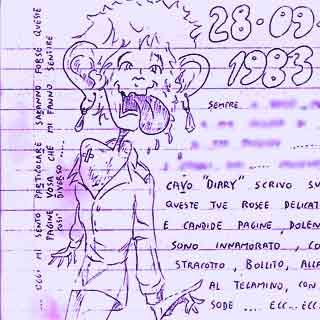 28-09-
1983
... OGGI MI SENTO PARTICOLARE SARANNO FORSE QUESTE
PAGINE VOSA CHE MI FANNO SENTIRE
COSI' DIVERSO ....
SEMPRE
CAVO "DIARY" SCRIVO SU
QUESTE TUE ROSEE DELICAT
E CANDIDE PAGINE DOLEN
SONO INNAMORATO , CO
STRACOTTO , BOLLITO, ALLA
AL TEGAMINO, CON
SODE .... ECC...ECC.